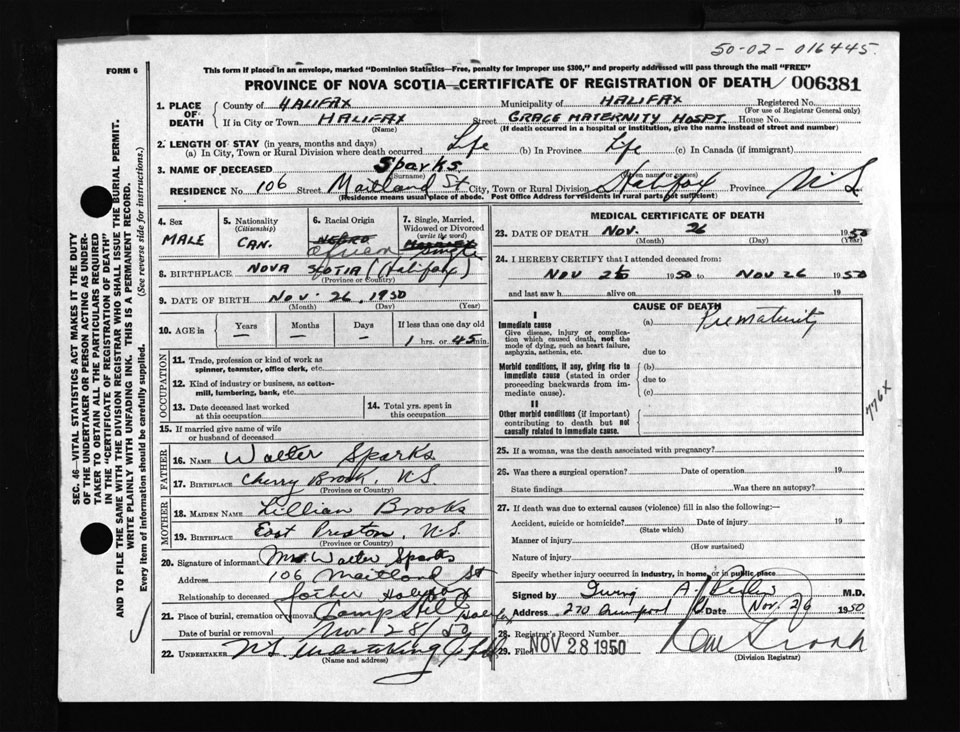 50-02-016445
FORM 6
This form if placed in an envelope, marked "Dominion Statistics—Free, penalty for improper use $300," and properly addressed will pass through the mail "FREE"
PROVINCE OF NOVA SCOTIA—CERTIFICATE OF REGISTRATION OF DEATH 006381
1. PLACE OF DEATH
County of HALIFAX Municipality of HALIFAX Registered No.
(For use of Registrar General only)
If in City or Town HALIFAX Street GRACE MATERNITY HOSPT. House No.
(Name) (If death occurred in a hospital or institution, give the name instead of street and number)
2. LENGTH OF STAY (in years, months and days)
(a) In City, Town or Rural Division where death occurred Life (b) In Province Life (c) In Canada (if immigrant)
3. NAME OF DECEASED Sparks
(Surname) (Given name or names)
RESIDENCE No. 106 Street Maitland St City, Town or Rural Division Halifax Province N S
(Residence means usual place of abode. Post Office Address for residents in rural parts not sufficient)
4. Sex
MALE
5. Nationality
(Citizenship)
CAN.
6. Racial Origin
NEGRO
African
7. Single, Married, Widowed or Divorced
(write the word)
Single
8. BIRTHPLACE NOVA SCOTIA (Halifax)
(Province or Country)
9. DATE OF BIRTH Nov. 26, 1950
(Month) (Day) (Year)
10. AGE in Years Months Days If less than one day old
— — — 1 hrs. or 45 min.
OCCUPATION
11. Trade, profession or kind of work as spinner, teamster, office clerk, etc.
12. Kind of industry or business, as cotton-mill, lumbering, bank, etc.
13. Date deceased last worked at this occupation
14. Total yrs. spent in this occupation
15. If married give name of wife or husband of deceased
FATHER
16. NAME Walter Sparks
17. BIRTHPLACE Cherry Brook, N.S.
(Province or Country)
MOTHER
18. MAIDEN NAME Lillian Brooks
19. BIRTHPLACE East Preston, N.S.
(Province or Country)
20. Signature of informant Mrs Walter Sparks
Address 106 Maitland St
Relationship to deceased Halifax
21. Place of burial, cremation or removal Camp Hill Halifax
Date of burial or removal Nov 28/50
22. UNDERTAKER N S Undertaking
(Name and address)
MEDICAL CERTIFICATE OF DEATH
23. DATE OF DEATH Nov. 26 1950
(Month) (Day) (Year)
24. I HEREBY CERTIFY that I attended deceased from:
Nov 26 1950 to Nov 26 1950
and last saw h alive on 19
CAUSE OF DEATH
I
Immediate cause (a) Prematurity
Give disease, injury or complication which caused death, not the mode of dying, such as heart failure, asphyxia, asthenia, etc.
due to
Morbid conditions, if any, giving rise to immediate cause (stated in order proceeding backwards from immediate cause).
(b)
due to
(c)
II
Other morbid conditions (if important) contributing to death but not causally related to immediate cause.
776X
25. If a woman, was the death associated with pregnancy?
26. Was there a surgical operation? Date of operation 19
State findings Was there an autopsy?
27. If death was due to external causes (violence) fill in also the following:—
Accident, suicide or homicide? Date of injury 19
(State which)
Manner of injury
(How sustained)
Nature of injury
Specify whether injury occurred in industry, in home, or in public place
Signed by Irving A. M.D.
Address 270 Date Nov. 26 1950
28. Registrar's Record Number
29. Filed NOV 28 1950
(Division Registrar)
SEC. 46—VITAL STATISTICS ACT MAKES IT THE DUTY
OF THE UNDERTAKER OR PERSON ACTING AS UNDER-
TAKER TO OBTAIN ALL THE PARTICULARS REQUIRED
IN THE "CERTIFICATE OF REGISTRATION OF DEATH"
AND TO FILE THE SAME WITH THE DIVISION REGISTRAR WHO SHALL ISSUE THE BURIAL PERMIT.
WRITE PLAINLY WITH UNFADING INK. THIS IS A PERMANENT RECORD.
Every item of information should be carefully supplied. (See reverse side for instructions.)